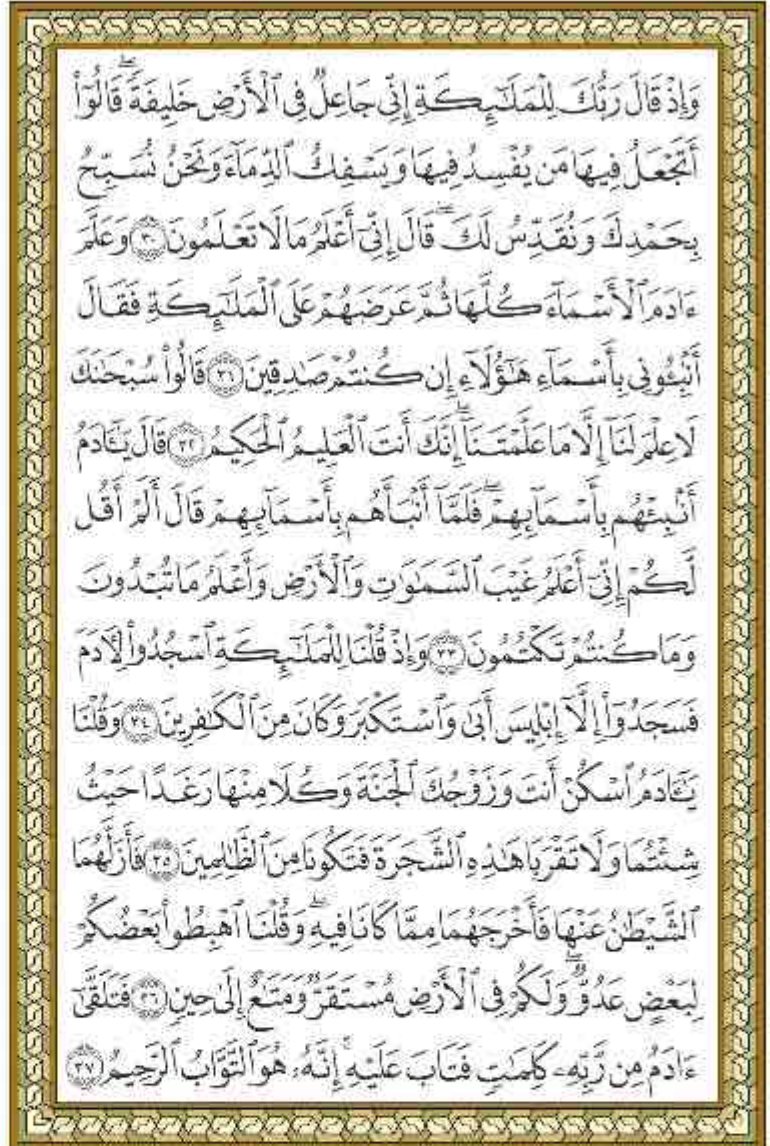 وَإِذْ قَالَ رَبُّكَ لِلْمَلَـٰٓئِكَةِ إِنِّى جَاعِلٌ فِى ٱلْأَرْضِ خَلِيفَةً ۖ قَالُوٓا۟
أَتَجْعَلُ فِيهَا مَن يُفْسِدُ فِيهَا وَيَسْفِكُ ٱلدِّمَآءَ وَنَحْنُ نُسَبِّحُ
بِحَمْدِكَ وَنُقَدِّسُ لَكَ ۖ قَالَ إِنِّىٓ أَعْلَمُ مَا لَا تَعْلَمُونَ ٣٠ وَعَلَّمَ
ءَادَمَ ٱلْأَسْمَآءَ كُلَّهَا ثُمَّ عَرَضَهُمْ عَلَى ٱلْمَلَـٰٓئِكَةِ فَقَالَ
أَنۢبِـُٔونِى بِأَسْمَآءِ هَـٰٓؤُلَآءِ إِن كُنتُمْ صَـٰدِقِينَ ٣١ قَالُوا۟ سُبْحَـٰنَكَ
لَا عِلْمَ لَنَآ إِلَّا مَا عَلَّمْتَنَآ ۖ إِنَّكَ أَنتَ ٱلْعَلِيمُ ٱلْحَكِيمُ ٣٢ قَالَ يَـٰٓـَٔادَمُ
أَنۢبِئْهُم بِأَسْمَآئِهِمْ ۖ فَلَمَّآ أَنۢبَأَهُم بِأَسْمَآئِهِمْ قَالَ أَلَمْ أَقُل
لَّكُمْ إِنِّىٓ أَعْلَمُ غَيْبَ ٱلسَّمَـٰوَٰتِ وَٱلْأَرْضِ وَأَعْلَمُ مَا تُبْدُونَ
وَمَا كُنتُمْ تَكْتُمُونَ ٣٣ وَإِذْ قُلْنَا لِلْمَلَـٰٓئِكَةِ ٱسْجُدُوا۟ لِـَٔادَمَ
فَسَجَدُوٓا۟ إِلَّآ إِبْلِيسَ أَبَىٰ وَٱسْتَكْبَرَ وَكَانَ مِنَ ٱلْكَـٰفِرِينَ ٣٤ وَقُلْنَا
يَـٰٓـَٔادَمُ ٱسْكُنْ أَنتَ وَزَوْجُكَ ٱلْجَنَّةَ وَكُلَا مِنْهَا رَغَدًا حَيْثُ
شِئْتُمَا وَلَا تَقْرَبَا هَـٰذِهِ ٱلشَّجَرَةَ فَتَكُونَا مِنَ ٱلظَّـٰلِمِينَ ٣٥ فَأَزَلَّهُمَا
ٱلشَّيْطَـٰنُ عَنْهَا فَأَخْرَجَهُمَا مِمَّا كَانَا فِيهِ ۖ وَقُلْنَا ٱهْبِطُوا۟ بَعْضُكُمْ
لِبَعْضٍ عَدُوٌّ ۖ وَلَكُمْ فِى ٱلْأَرْضِ مُسْتَقَرٌّ وَمَتَـٰعٌ إِلَىٰ حِينٍ ٣٦ فَتَلَقَّىٰٓ
ءَادَمُ مِن رَّبِّهِۦ كَلِمَـٰتٍ فَتَابَ عَلَيْهِ ۚ إِنَّهُۥ هُوَ ٱلتَّوَّابُ ٱلرَّحِيمُ ٣٧